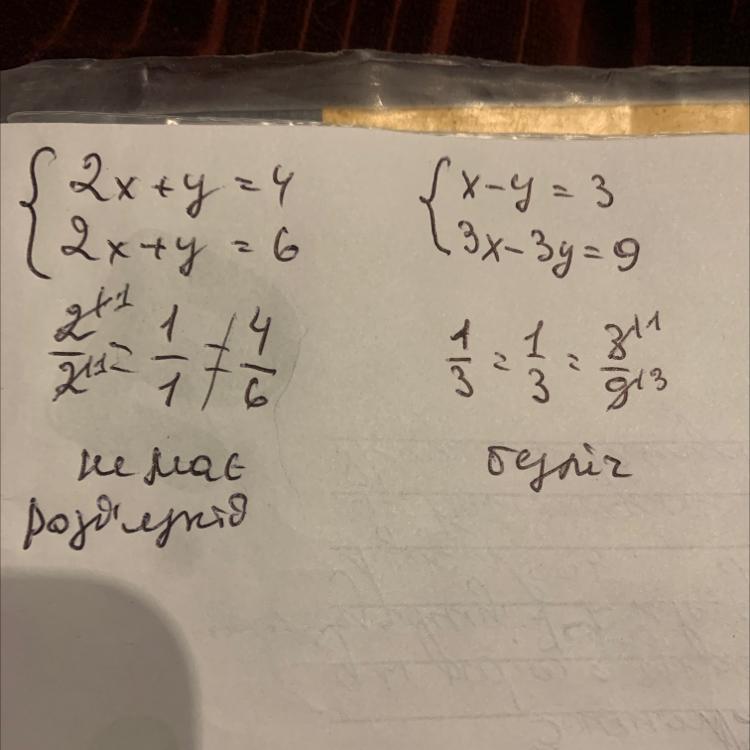 2x + y = 4
2x + y = 6
2/2 = 1/1 ≠ 4/6
немає
розв'язків
x - y = 3
3x - 3y = 9
1/3 = 1/3 = 3/9
безліч